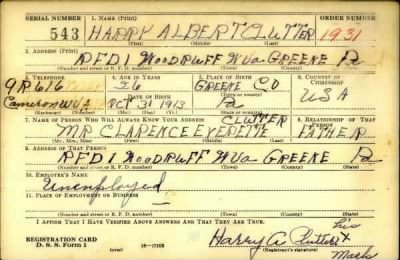 SERIAL NUMBER 1. NAME (Print) ORDER NUMBER
543 HARRY ALBERT CLUTTER 1931
(First) (Middle) (Last)
2. ADDRESS (Print)
RFD 1 WOODRUFF WVA GREENE Pa
(Number and street or R. F. D. number) (Town) (County) (State)
3. TELEPHONE 4. AGE IN YEARS 5. PLACE OF BIRTH 6. COUNTRY OF CITIZENSHIP
9R616 26 GREENE CO
Cameron WVA OCT 31 1913 Pa USA
7. NAME OF PERSON WHO WILL ALWAYS KNOW YOUR ADDRESS 8. RELATIONSHIP OF THAT PERSON
CLUTTER
MR CLARENCE EVERETTE FATHER
(Mr., Mrs., Miss) (First) (Middle) (Last)
9. ADDRESS OF THAT PERSON
RFD 1 WOODRUFF WVA GREENE Pa
(Number and street or R. F. D. number) (Town) (County) (State)
10. EMPLOYER'S NAME
Unemployed
11. PLACE OF EMPLOYMENT OR BUSINESS
(Number and street or R. F. D. number) (Town) (County) (State)
I AFFIRM THAT I HAVE VERIFIED ABOVE ANSWERS AND THAT THEY ARE TRUE.
His
REGISTRATION CARD Harry A Clutter X
D. S. S. Form 1 (Registrant's signature)
Mark